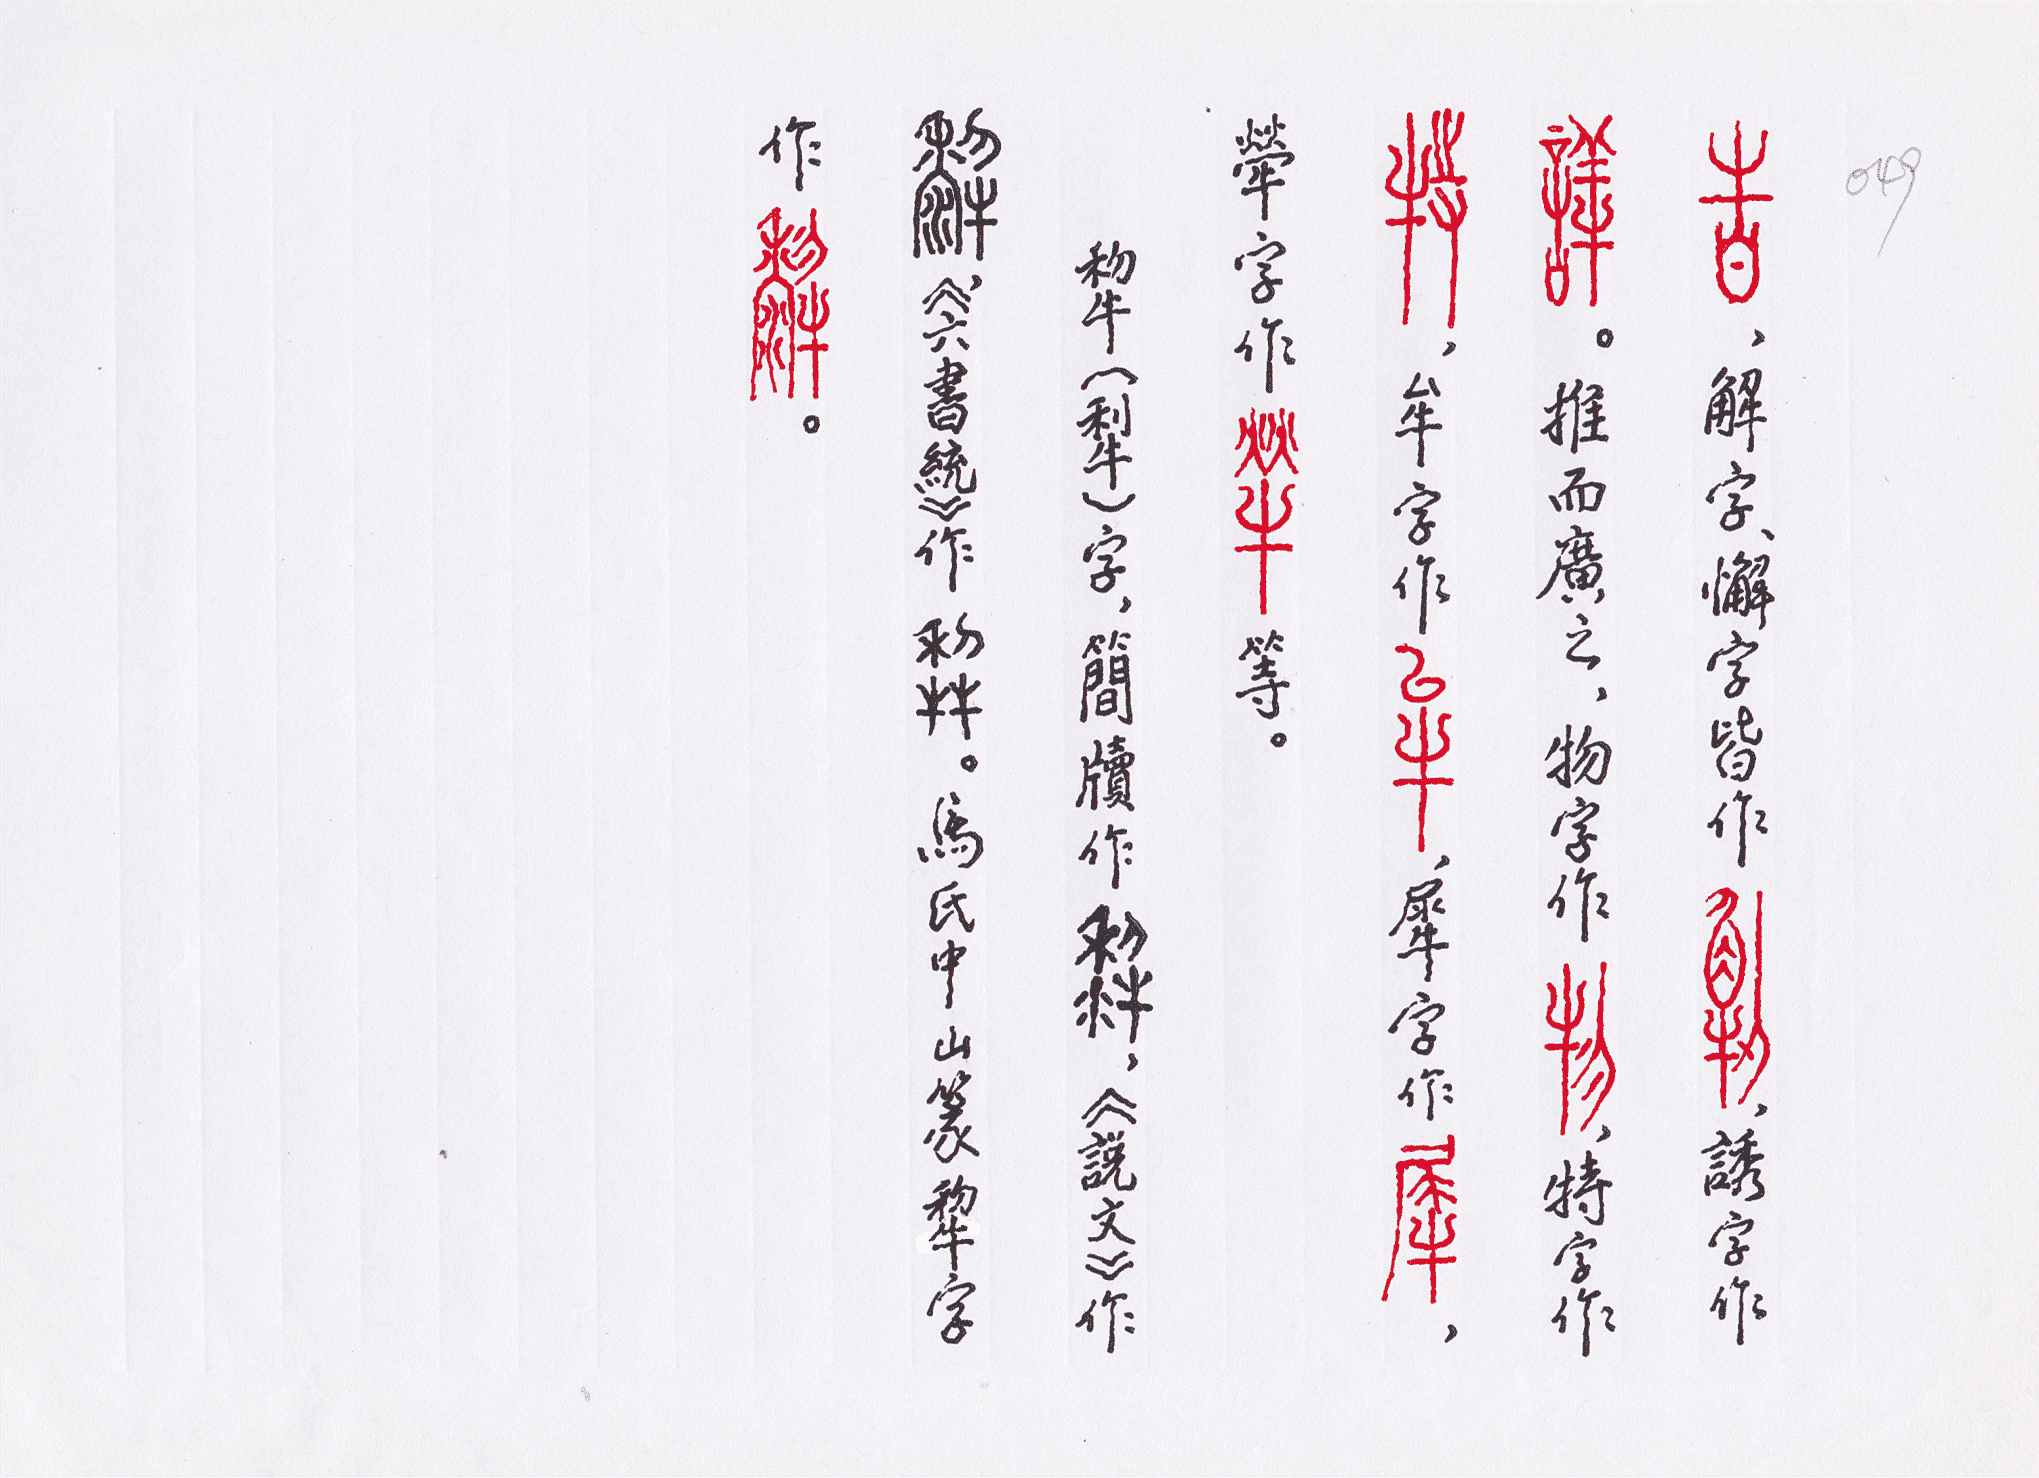 049
告、解字、懈字皆作、誘字作
。推而廣之、物字作物、特字作
特、牟字作牟、犀字作犀、
犖字作等。
犂(犁)字、簡牘作、《説文》作
、《六書統》作。馬氏中山篆犂字
作。